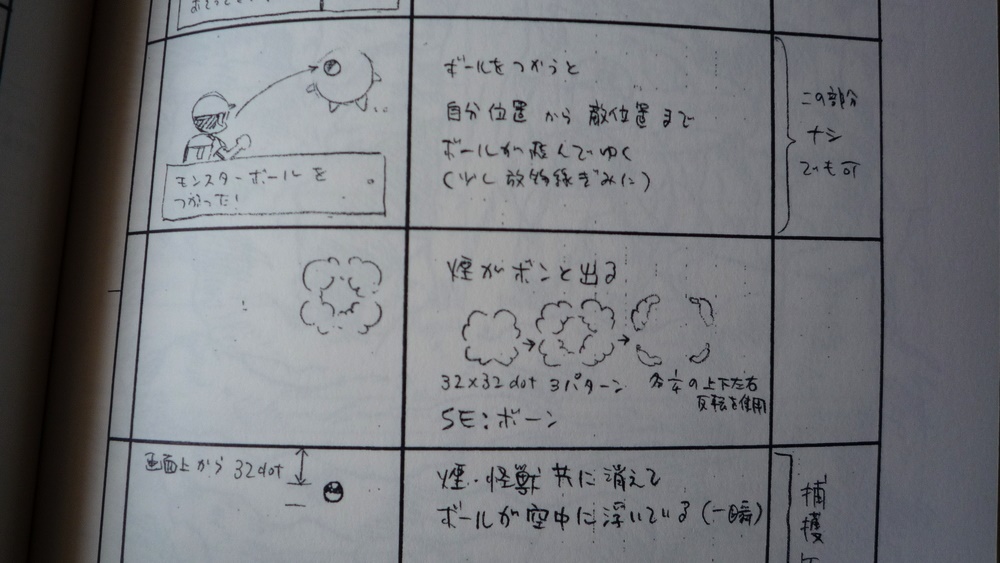 モンスターボールを
つかった!
ボールをつかうと
自分位置から敵位置まで
ボールが飛んでゆく
(少し放物線ぎみに)
この部分
ナシ
でも可
煙がボンと出る
32×32dot 3パターン
各1/4の上下左右
反転を使用
SE:ボーン
画面上から 32dot
煙・怪獣共に消えて
ボールが空中に浮いている(一瞬)
捕獲